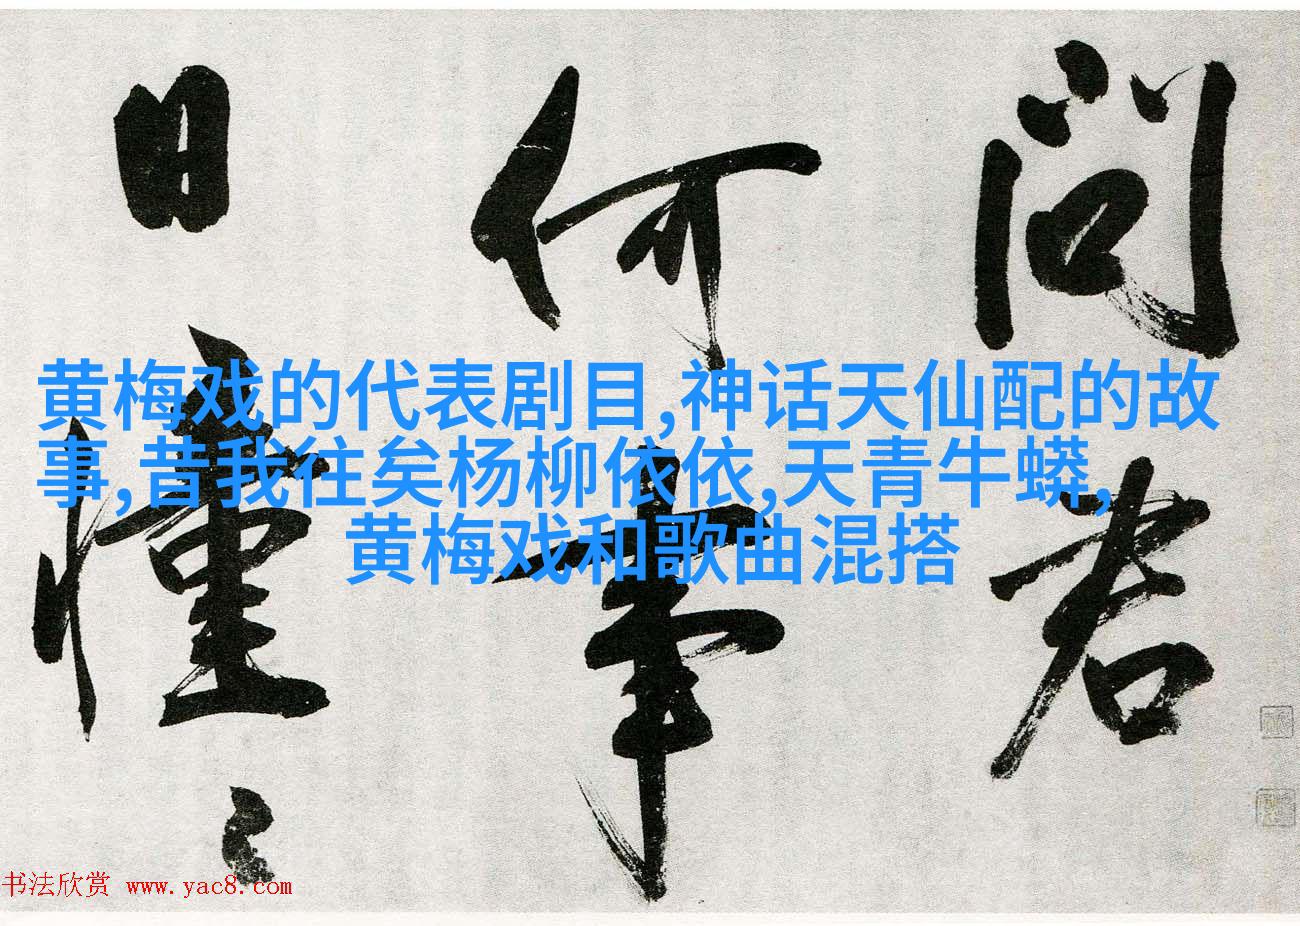 問君
何事
日憧々
黄梅戏的代表剧目,神话天仙配的故
事,昔我往矣杨柳依依,天青牛蟒,
黄梅戏和歌曲混搭
书法欣赏 www.yac8.com